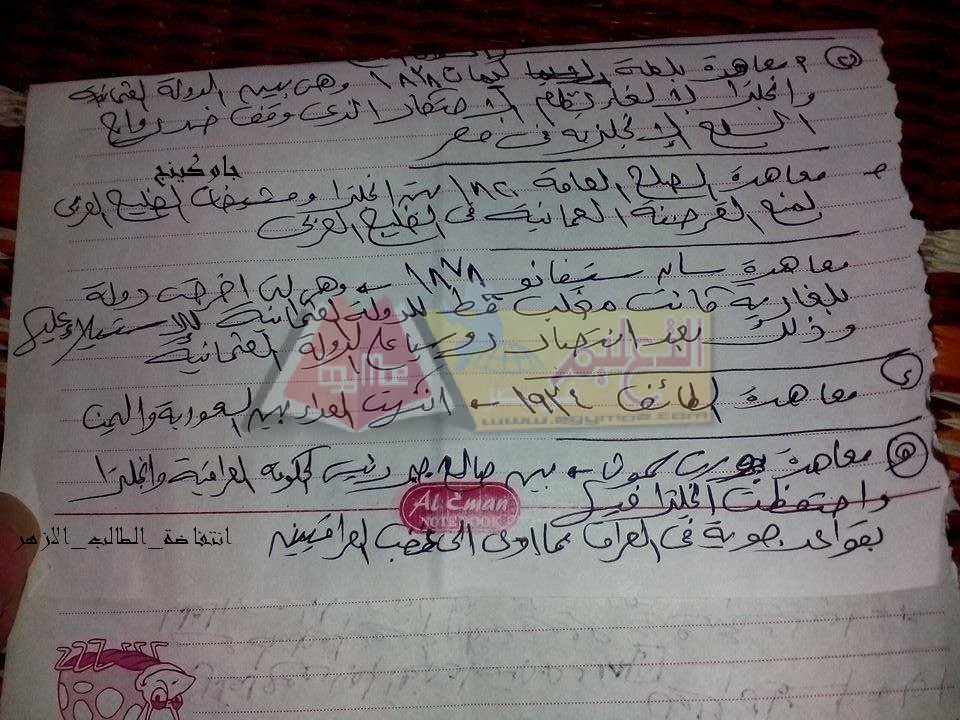 معاهدة بلطة ليمان ١٨٣٨ وهى بين الدولة العثمانية
وانجلترا لإلغاء نظام الاحتكار الذى وقف ضد رواج
السلع الإنجليزية فى مصر
جاوكينج
معاهدة الصلح العامة ١٨٢٠ بين انجلترا ومشيخات الخليج العربى
لمنع القرصنة العمانية فى الخليج العربى
معاهدة سان ستيفانو ١٨٧٨ وهى التى اخرجت دولة
بلغارية كانت مخلب قط للدولة العثمانية للاستيلاء عليها
وذلك بعد انتصار روسيا على الدولة العثمانية
www.egymoe.com
معاهدة الطائف ١٩٣٤ انتهت العداء بين السعودية واليمن
معاهدة بورت سموث بين صالح جبر رئيس الحكومة العراقية وانجلترا
واحتفظت انجلترا فيها
Al Eman
NOTEBOOK
بقواعد جوية فى العراق مما ادى الى غضب العراقيين
انتفاضة_الطالب_الازهر